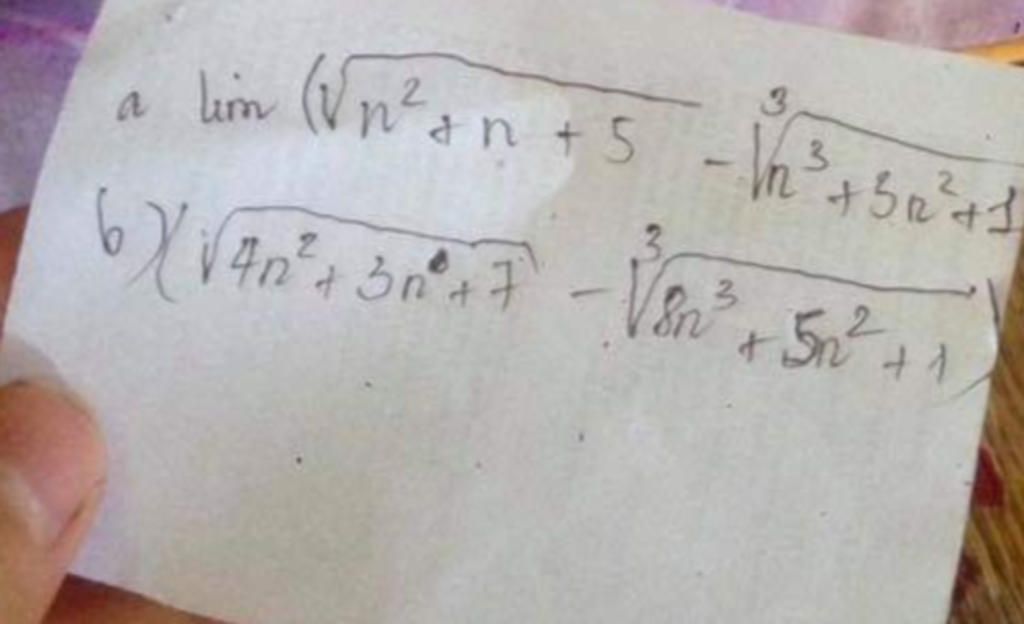 a lim (√n² + n + 5 - ∛n³ + 3n² + 1
b) (√4n² + 3n + 7 - ∛8n³ + 5n² + 1)